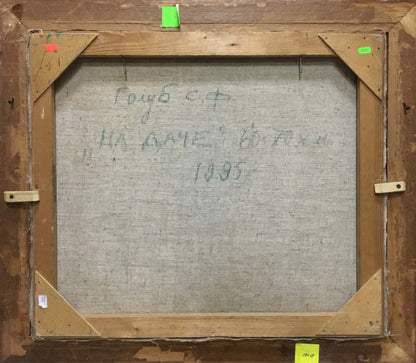 Голуб С.Ф.
"НА ДАЧЕ" 60-70 х.м.
1995г